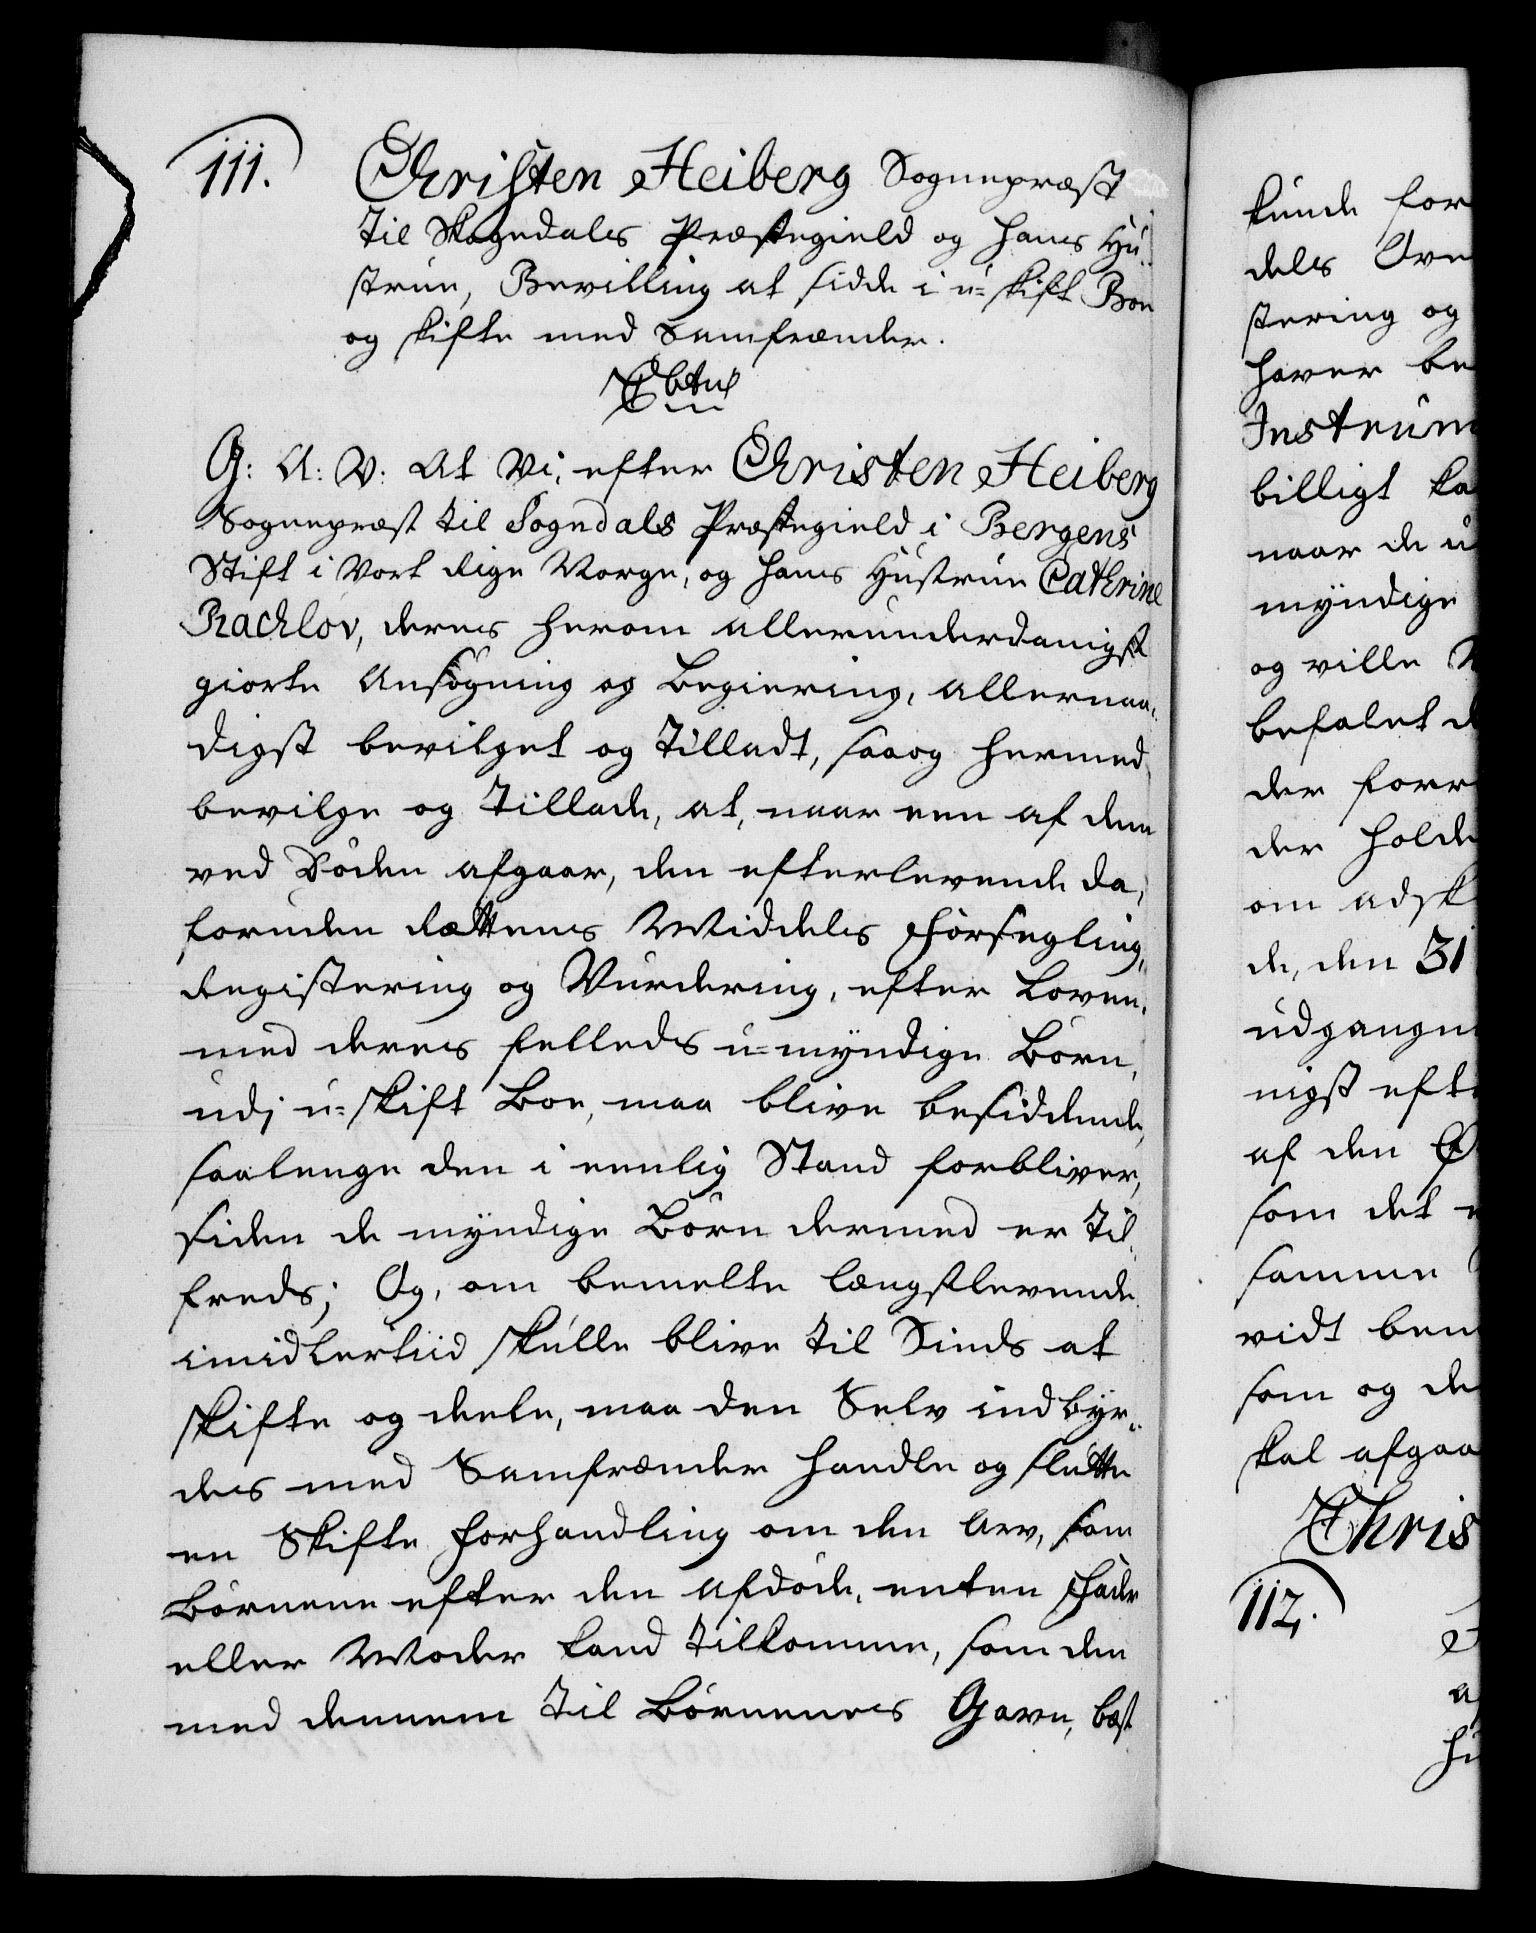 111.
Christen Heiberg Sognepræst
til Sogndals Præstegield og hans Hu-
strue, Bevilling at sidde i u-skift Boe
og skifte med Samfrænder.
G: A: V: At Vi, efter Christen Heiberg
Sognepræst til Sogndals Præstegield i Bergens
Stift i Vort Rige Norge, og hans Hustrue Cathrine
Rachlov, deres herom allerunderdanigst
giorte Ansøgning og Begiering, allernaa-
digst bevilget og Tilladt, saaog hermed
bevilge og Tillade, at, naar een af dem
ved Døden afgaar, den efterlevende da,
foruden Rettens Middels Forsegling,
Registering og Vurdering, efter Loven,
med deres felleds u-myndige Børn,
udj u-skift Boe, maa blive besiddende,
saalenge den i eenlig Stand forbliver,
siden de myndige Børn dermed er til-
freds; Og, om bemelte længstlevende
imidlertiid skulle blive til Sinds at
skifte og deele, maa den Selv indbyr-
des med Samfrænder handle og slutte
en Skifte Forhandling om den Arv, som
Børnene efter den afdøde, enten Fader
eller Moder kand tilkomme, som den
med dennem til Børnenes Gavn, best
kunde for
dels Ove
stering og
haver be
Instrum
billigt ka
naar de u
myndige
og ville
befalet d
der forr
der holde
om adsk
de, den 31
udgangne
nigst efte
af den
som det
samme
vidt bem
som og de
skal afgaa
Chris
112.